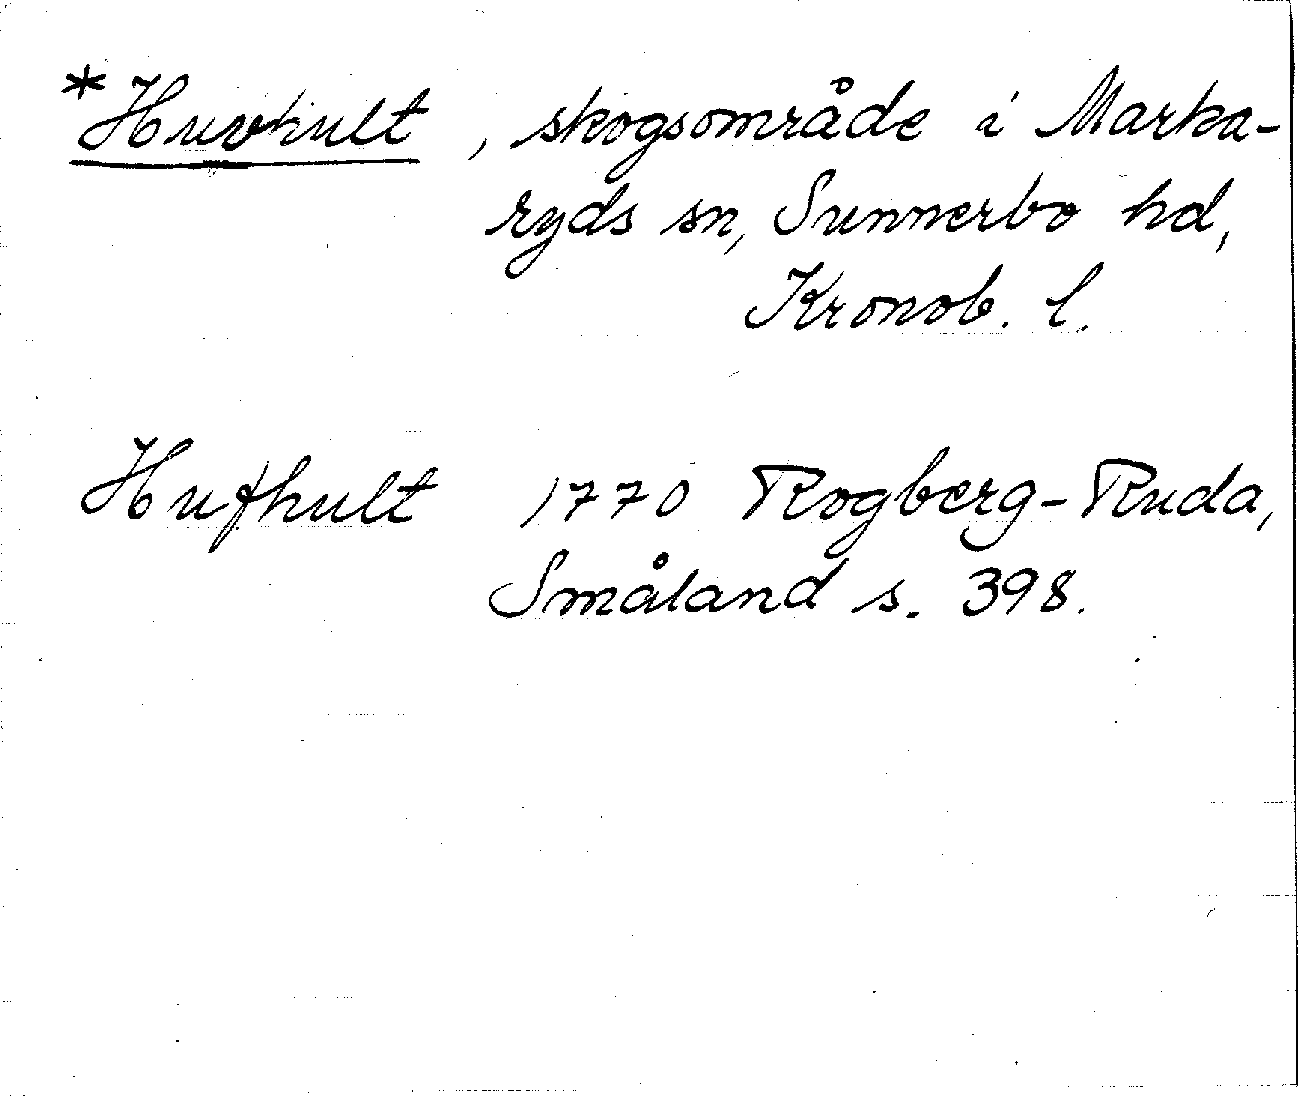 *Huvhult, skogsområde i Marka-
ryds sn, Sunnerbo hd,
Kronob. l.
Hufhult 1770 Rogberg-Ruda,
Småland s. 398.